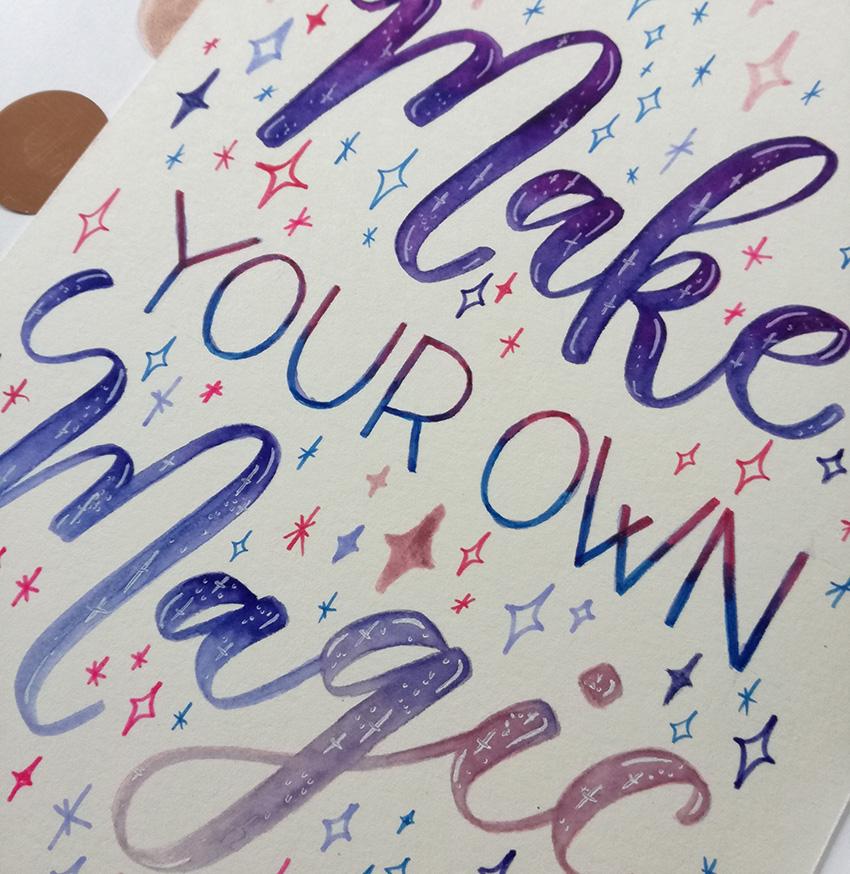 Make
YOUR OWN
Magic